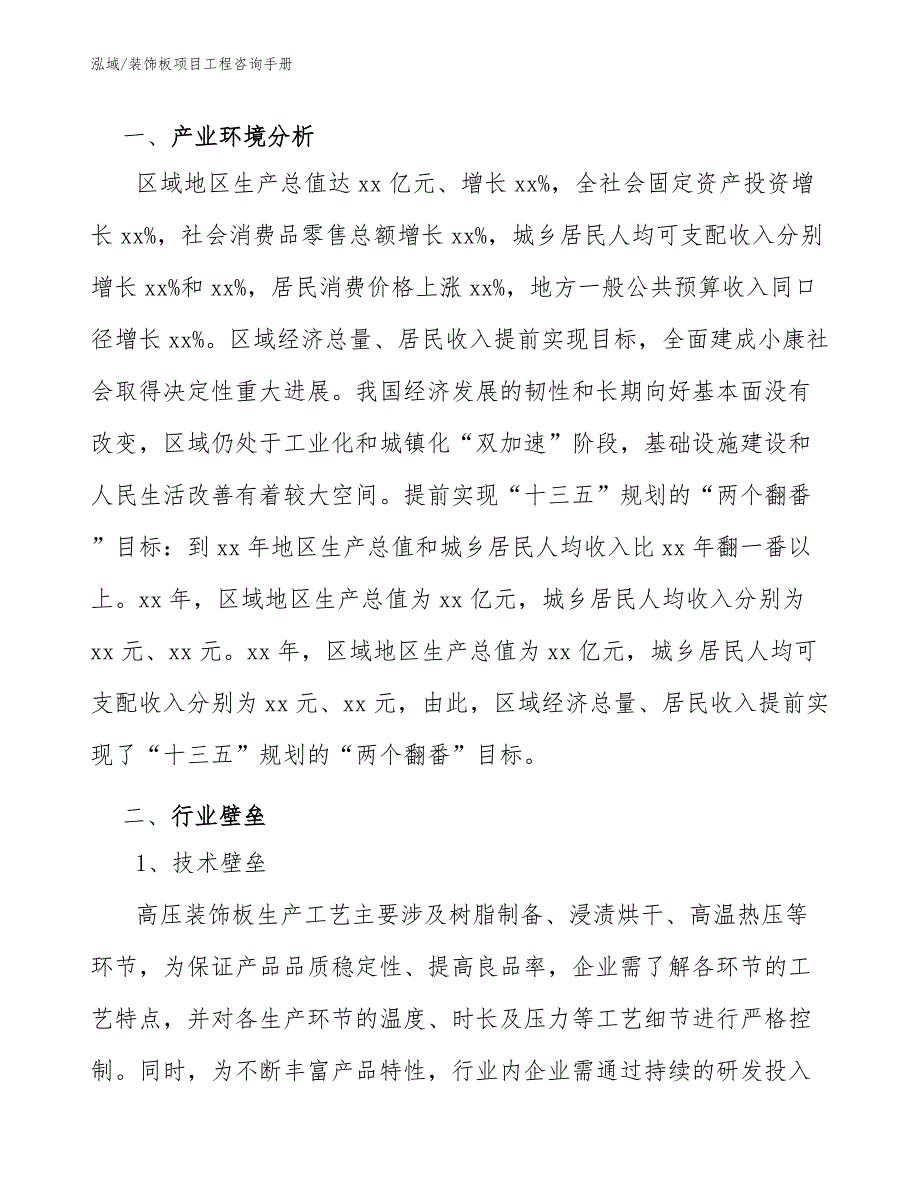 泓域/装饰板项目工程咨询手册
一、产业环境分析
区域地区生产总值达 xx 亿元、增长 xx%，全社会固定资产投资增
长 xx%，社会消费品零售总额增长 xx%，城乡居民人均可支配收入分别
增长 xx%和 xx%，居民消费价格上涨 xx%，地方一般公共预算收入同口
径增长 xx%。区域经济总量、居民收入提前实现目标，全面建成小康社
会取得决定性重大进展。我国经济发展的韧性和长期向好基本面没有
改变，区域仍处于工业化和城镇化“双加速”阶段，基础设施建设和
人民生活改善有着较大空间。提前实现“十三五”规划的“两个翻番
”目标：到 xx 年地区生产总值和城乡居民人均收入比 xx 年翻一番以
上。xx 年，区域地区生产总值为 xx 亿元，城乡居民人均收入分别为
xx 元、xx 元。xx 年，区域地区生产总值为 xx 亿元，城乡居民人均可
支配收入分别为 xx 元、xx 元，由此，区域经济总量、居民收入提前实
现了“十三五”规划的“两个翻番”目标。
二、行业壁垒
1、技术壁垒
高压装饰板生产工艺主要涉及树脂制备、浸渍烘干、高温热压等
环节，为保证产品品质稳定性、提高良品率，企业需了解各环节的工
艺特点，并对各生产环节的温度、时长及压力等工艺细节进行严格控
制。同时，为不断丰富产品特性，行业内企业需通过持续的研发投入